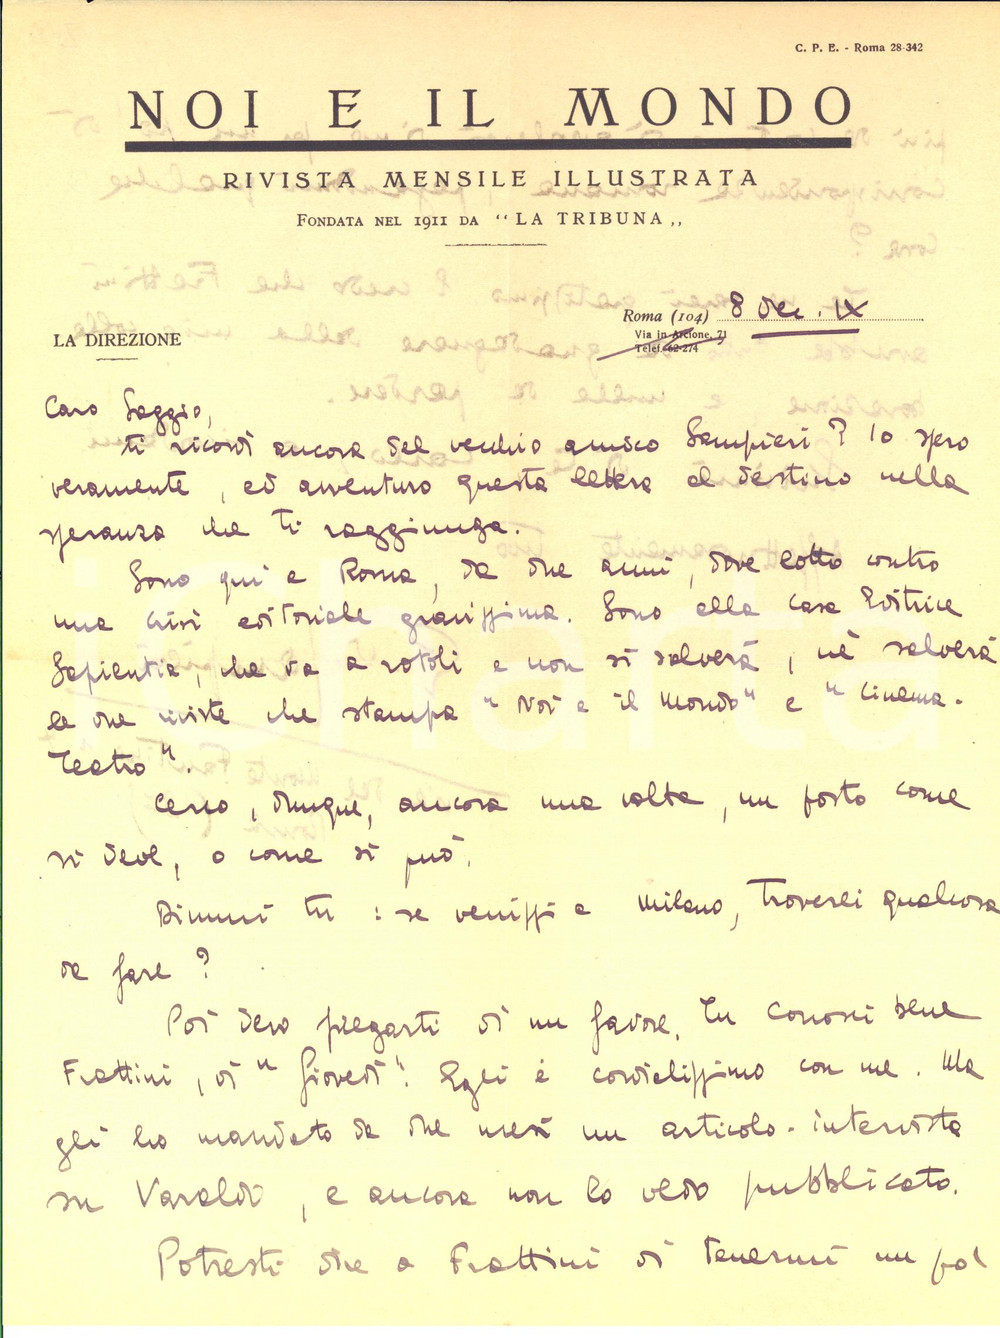 C. P. E. - Roma 28-342
NOI E IL MONDO
RIVISTA MENSILE ILLUSTRATA
FONDATA NEL 1911 DA “LA TRIBUNA„
Roma (104) 8 Dic. IX
Via in Arcione, 71
Telef. 62-274
LA DIREZIONE
Caro Saggio,
ti ricordi ancora del vecchio amico Sampieri? Io spero
veramente, ed avventuro questa lettera al destino nella
speranza che ti raggiunga.
Sono qui a Roma, da due anni, dove lotto contro
una crisi editoriale gravissima. Sono alla Casa Editrice
Sapientia, che va a rotoli e non si salverà, nè salverà
le due riviste che stampa "Noi e il Mondo" e "Cinema-
Teatro".
Cerco, dunque, ancora una volta, un posto come
si deve, o come si può.
Dimmi tu: se venissi a Milano, troverei qualcosa
da fare?
Poi devo pregarti di un favore. Tu conosci bene
Frattini, di "Giovedì". Egli è cordialissimo con me. Ma
gli ho mandato da due mesi un articolo-intervista
su Varaldo, e ancora non lo vedo pubblicato.
Potresti dire a Frattini di tenermi un po'
iCharta